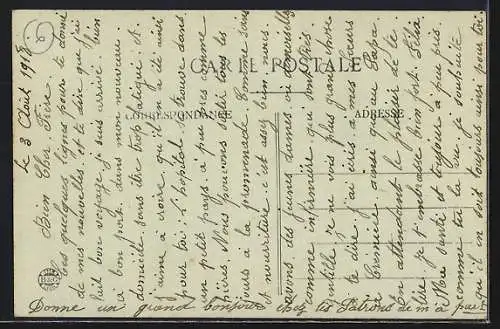 CARTE POSTALE
CORRESPONDANCE
ADRESSE
Le 3 Août 1918
Bien Cher Frère
Ces quelques lignes pour te donné
de mes nouvelles et te dire que j'ai
fait bon voyage je suis arrivé bien
à bon port. dans mon nouveau
domicile sans être trop fatigué et
j'aime à croire qu'il en a été ainsi
pour toi. l'hopital se trouve dans
un petit pays à peu près comme
Nous pouvons sortir tous les
jours à la promenade. Comme soins
et nourriture c'est assez bien nous
avons des jeunes dames ou demoiselles
comme infirmière qui sont très
gentille je ne vois plus grand chose
à te j'ai écris à mes sœurs
ainsi qu'au Papa
En attendant le plaisir de te
lire je t'embrasse bien fort. Félix
Ma santé toujours à peu près
comme tu la vu je souhaite
en soit toujours ainsi
Donne un grand bonjour chez les Patrons de m'a part